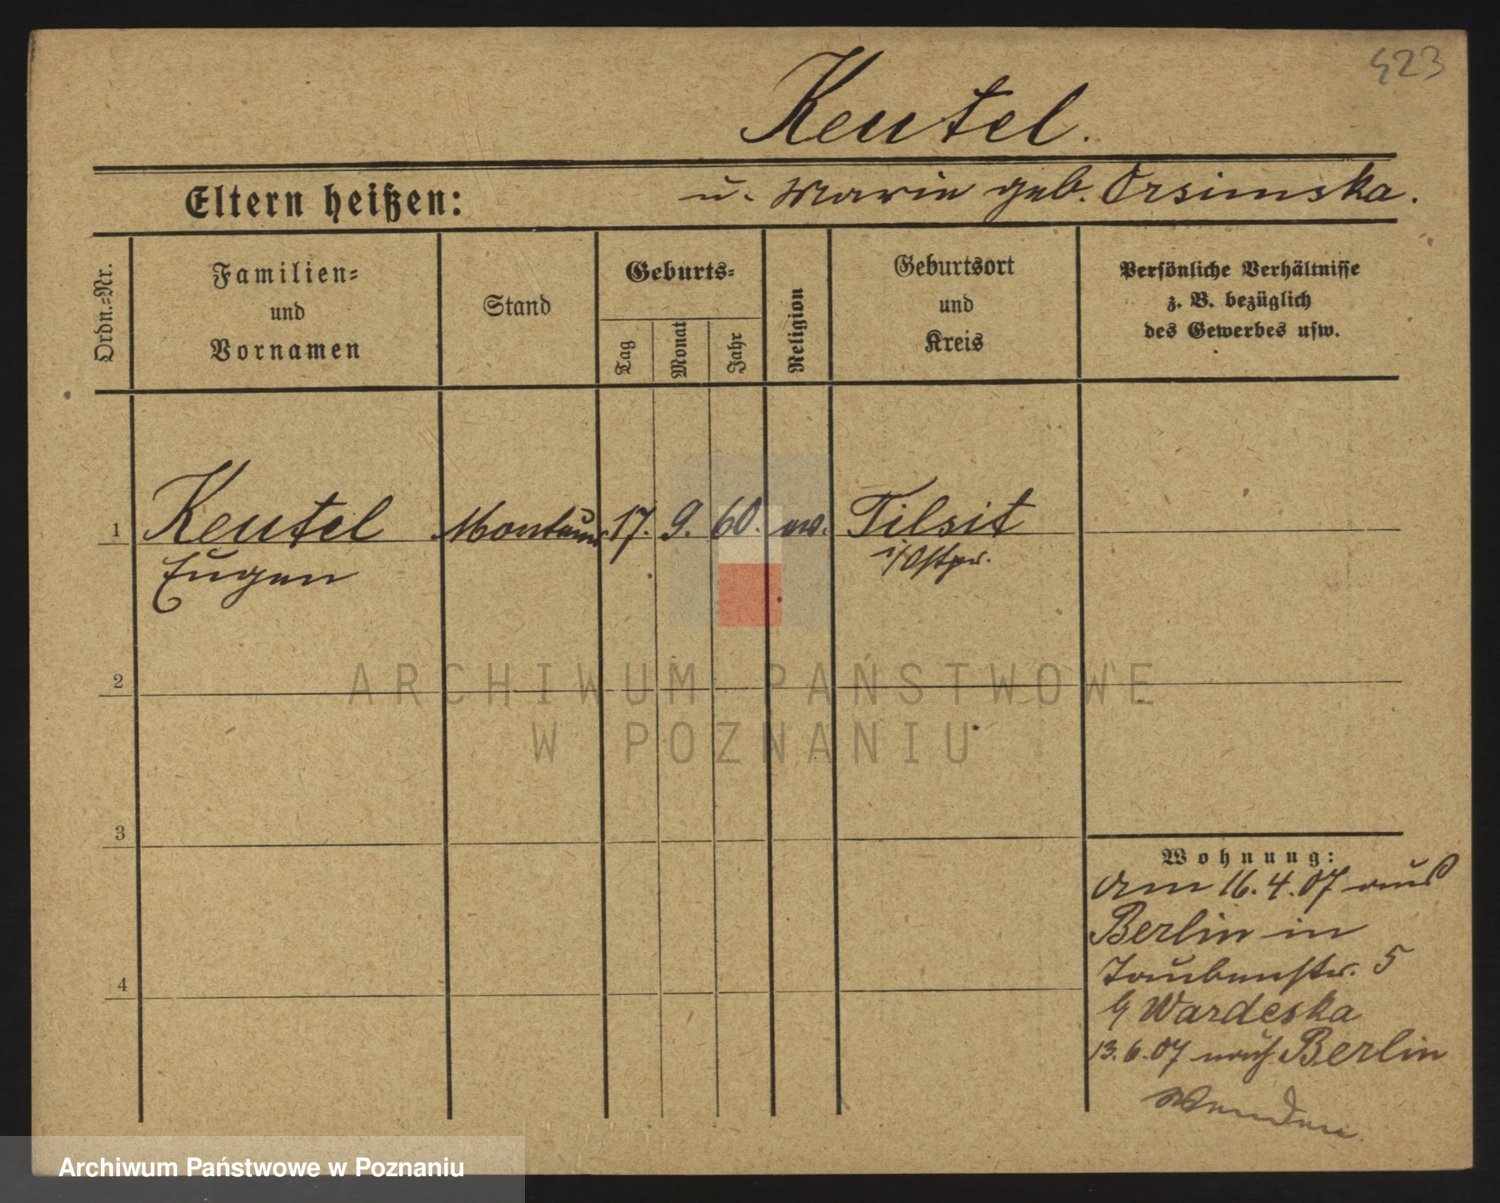 423
Keutel.
Eltern heißen: u. Marie geb. Orsimska.
Ordn.=Nr.
Familien=
und
Vornamen
Stand
Geburts=
Tag
Monat
Jahr
Religion
Geburtsort
und
Kreis
Persönliche Verhältnisse
z. B. bezüglich
des Gewerbes usw.
1 Keutel Monteur 17. 9. 60. ev. Tilsit
Eugen i/Ostpr.
2
3
4
ARCHIWUM PAŃSTWOWE
W POZNANIU
Wohnung:
Am 16. 4. 07 aus
Berlin in
Taubenstr. 5
Wardeska
13. 6. 07 nach Berlin
Archiwum Państwowe w Poznaniu